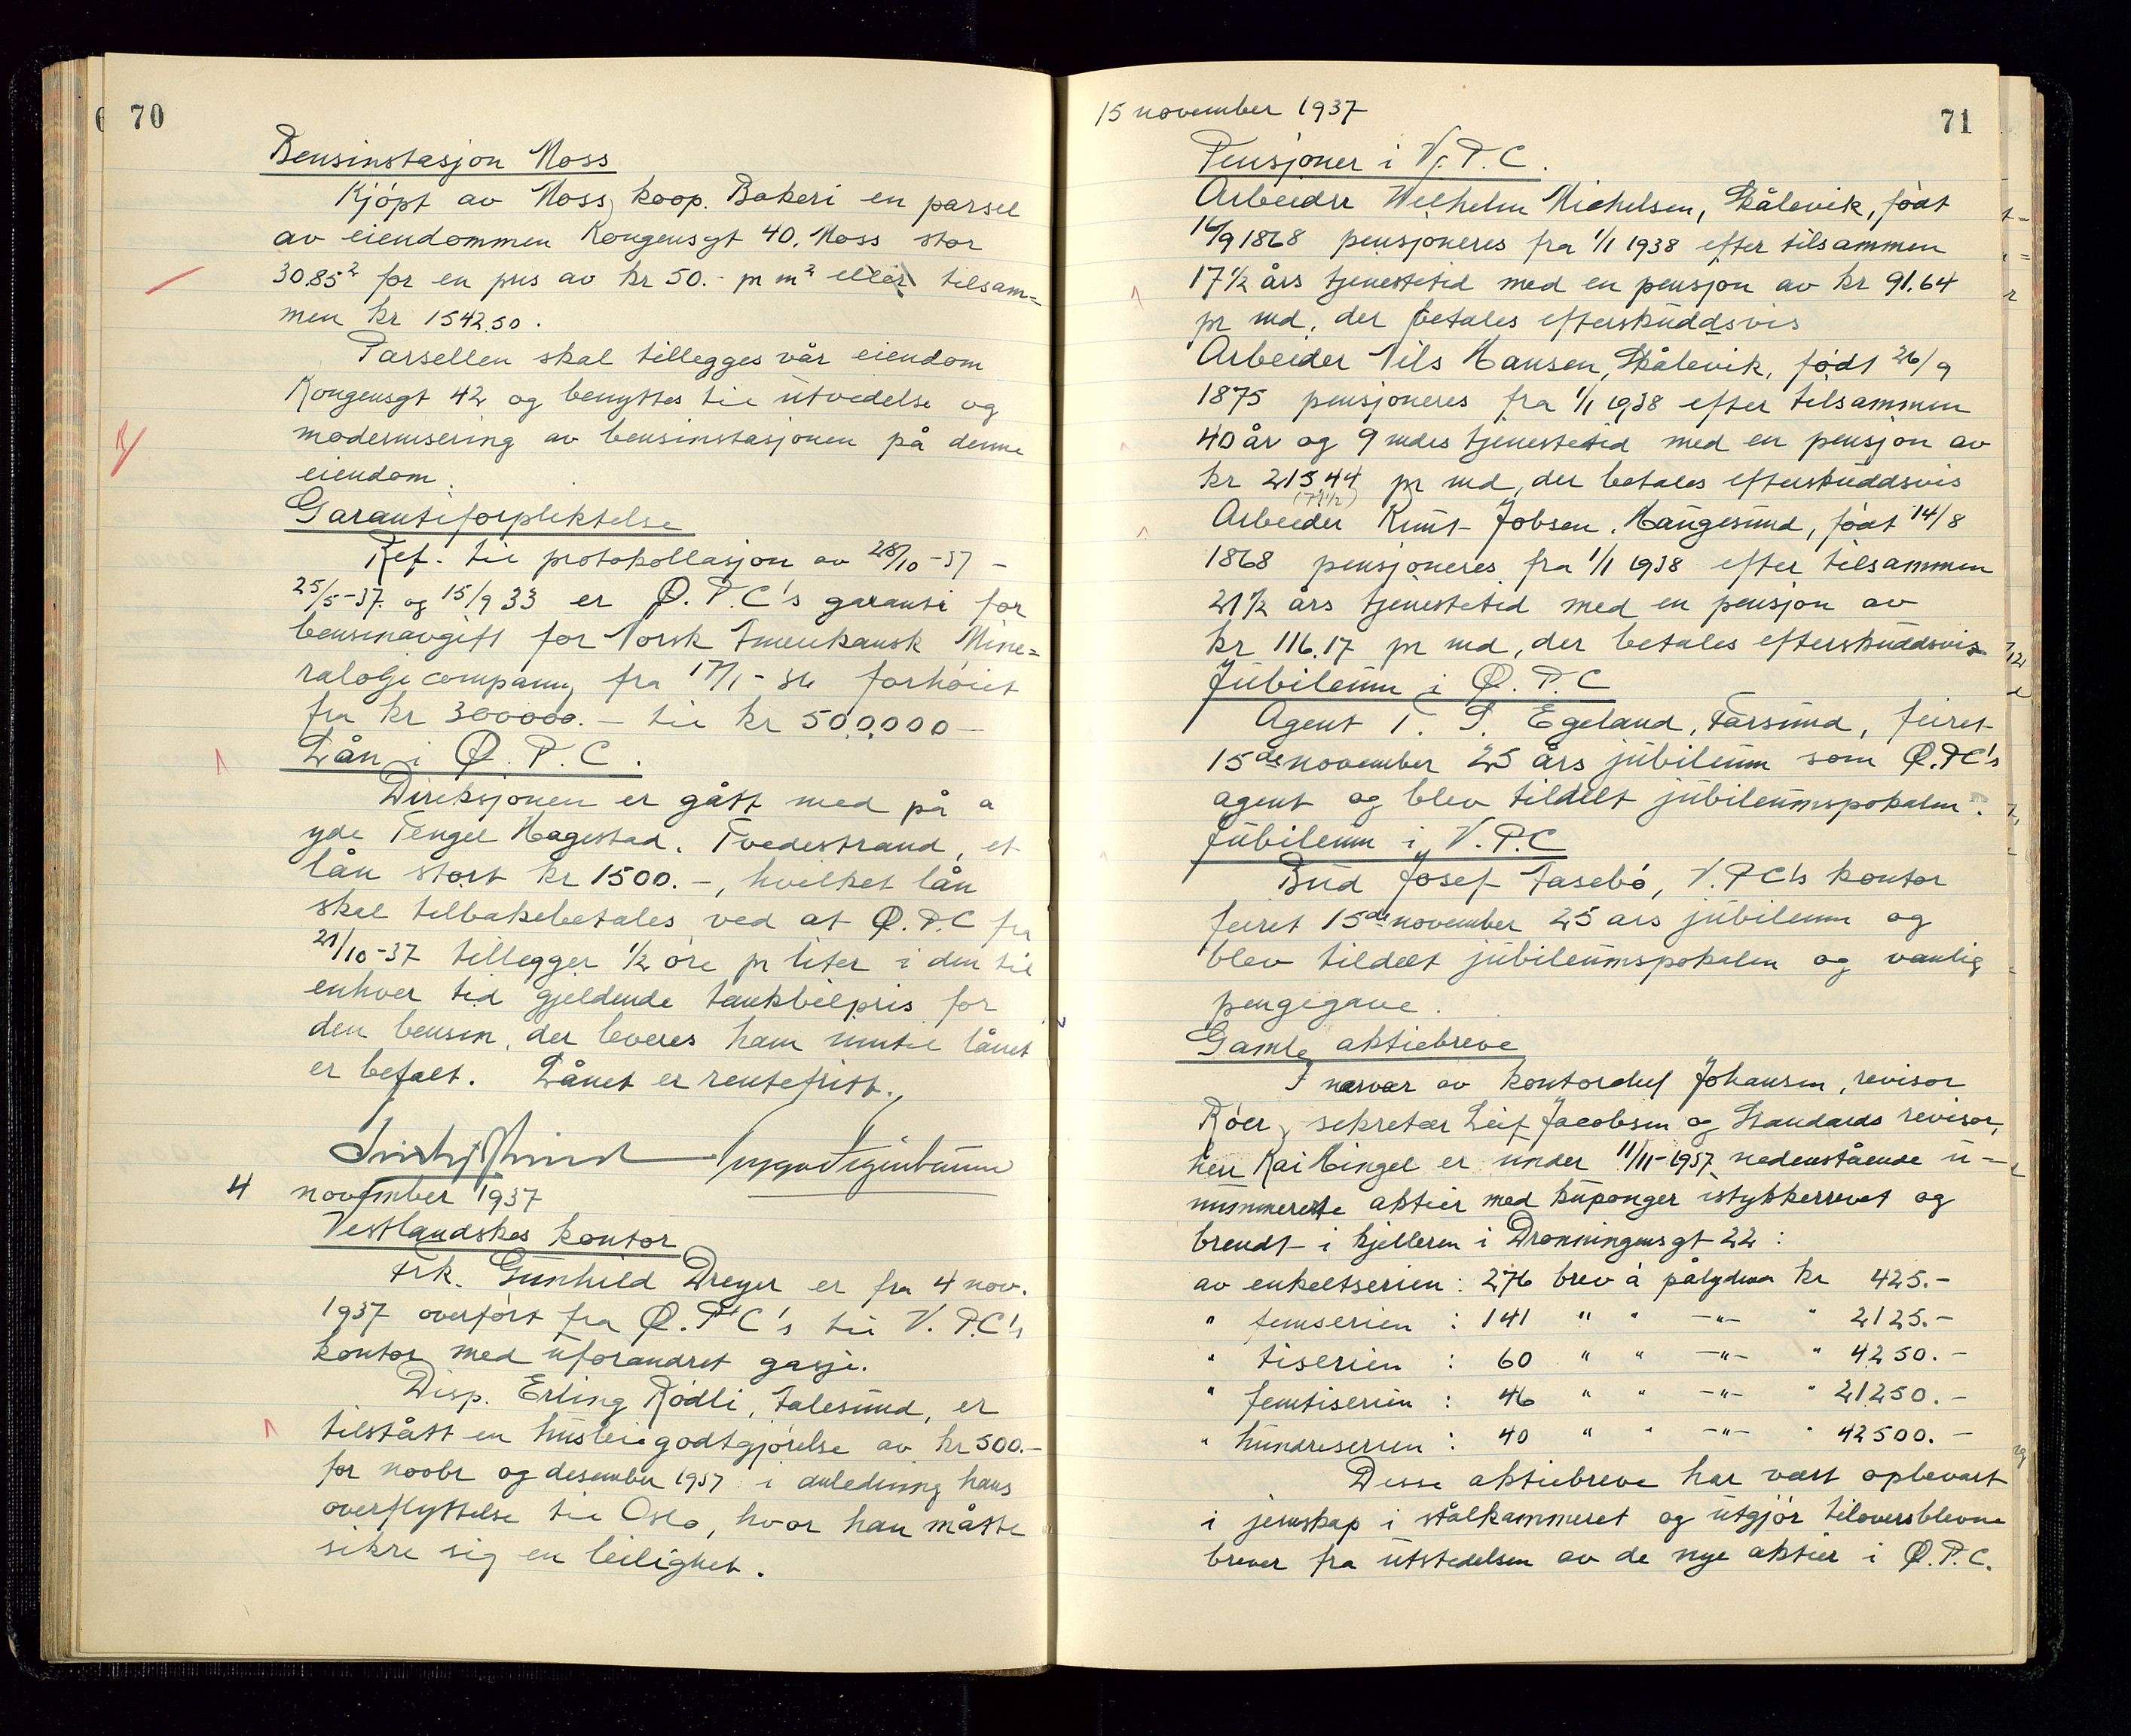 70
Bensinstasjon Moss
Kjöpt av Moss koop. Bakeri en parsel
av eiendommen Kongensgt 40, Moss stor
30.85² for en pris av kr 50.- pr m² eller tilsam=
men kr 1542.50.
Parsellen skal tillegges vår eiendom
Kongensgt 42 og benyttes til utvedelse og
modernisering av bensinstasjonen på denne
eiendom.
Garantiforpliktelse
Ref. til protokollasjon av 28/10-37 -
25/5-37 og 15/9 33 er Ø.P.C's garanti for
bensinavgift for Norsk Amerikansk Mine=
raloljecompany fra forhöiet
fra kr 300000.- til kr 500,000-
Lån i Ø.P.C.
Direksjonen er gått med på a
yde Tengel Hagestad, Tvedestrand, et
lån stort kr 1500.-, hvilket lån
skal tilbakebetales ved at Ø.P.C fra
21/10-37 tillegger 1/2 öre pr liter i den til
enhver tid gjeldende tankbilpris for
den bensin, der leveres ham inntil lånet
er betalt. Lånet er rentefritt.
4 november 1937
Vestlandskes kontor
Frk. Gunhild Dreyer er fra 4 nov.
1937 overfört fra Ø.P.C's til V.P.C's
kontor med uforandret gasje.
Disp. Erling Rödli, Aalesund, er
tilstått en husleiegodtgjörelse av kr 500.-
for novbr og desember 1937 i anledning hans
overflyttelse til Oslo, hvor han måtte
sikre sig en leilighet.
15 november 1937
71
Pensjoner i V.P.C.
Arbeider Wilhelm Michelsen, Skålevik, födt
16/9 1868 pensjoneres fra 1/1 1938 efter tilsammen
17 1/2 års tjenestetid med en pensjon av kr 91.64
pr md, der betales efterskuddsvis
Arbeider Nils Hansen, Skålevik, födt 26/9
1875 pensjoneres fra 1/1 1938 efter tilsammen
40 år og 9 mdrs tjenestetid med en pensjon av
kr 215 44 pr md, der betales efterskuddsvis
Arbeider Knut Jobsen, Haugesund, födt 14/8
1868 pensjoneres fra 1/1 1938 efter tilsammen
21 1/2 års tjenestetid med en pensjon av
kr 116.17 pr md, der betales efterskuddsvis
Jubileum i Ø.P.C
Agent T. S. Egeland, Farsund, feiret
15de november 25 års jubileum som Ø.P.C's
agent og blev tildelt jubileumspokalen.
Jubileum i V.P.C
Bud Josef Aasebö, V.P.C's kontor
feiret 15de november 25 ars jubileum og
blev tildelt jubileumspokalen og vanlig
pengegave.
Gamle aktiebreve
I nærvær av kontorchef Johansen, revisor
Röer, sekretær Leif Jacobsen og Standards revisor,
herr Kai Hingel er under 11/11-1937 nedenstående u-
nummererte aktier med kuponger istykkerrevet og
brendt i kjelleren i Dronningensgt 22:
av enkeltserien: 276 brev à pålydende kr 425.-
" femserien : 141 " " -"- " 2125.-
" tiserien : 60 " " -"- " 4250.-
" femtiserien : 46 " " -"- " 21250.-
" hundreserien : 40 " " -"- " 42500.-
Disse aktiebreve har vært opbevart
i jernskap i stålkammeret og utgjör tiloversblevne
brever fra utstedelsen av de nye aktier i Ø.P.C.